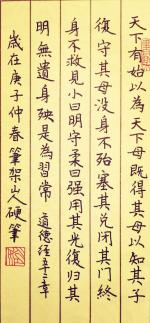 天下有始以為天下母既得其母以知其子
復守其母没身不殆塞其兑闭其门终
身不救見小曰明守柔曰强用其光復归其
明無遺身殃是為習常 道德经五十二章
歲在庚子仲春筆架山人硬筆